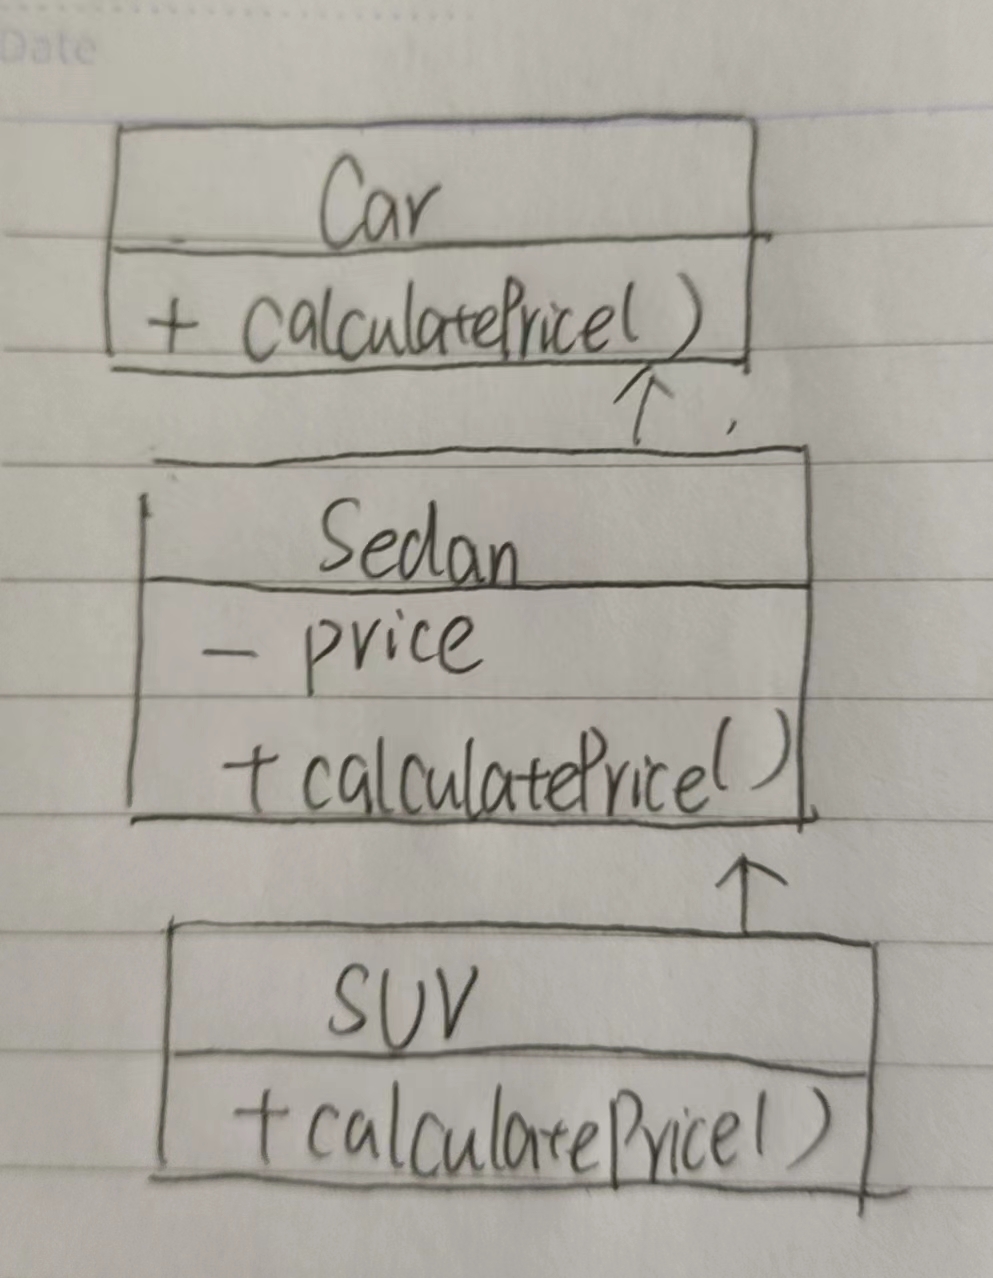 Date
Car
+ calculatePrice( )
Sedan
- price
+ calculatePrice( )
SUV
+ calculatePrice( )